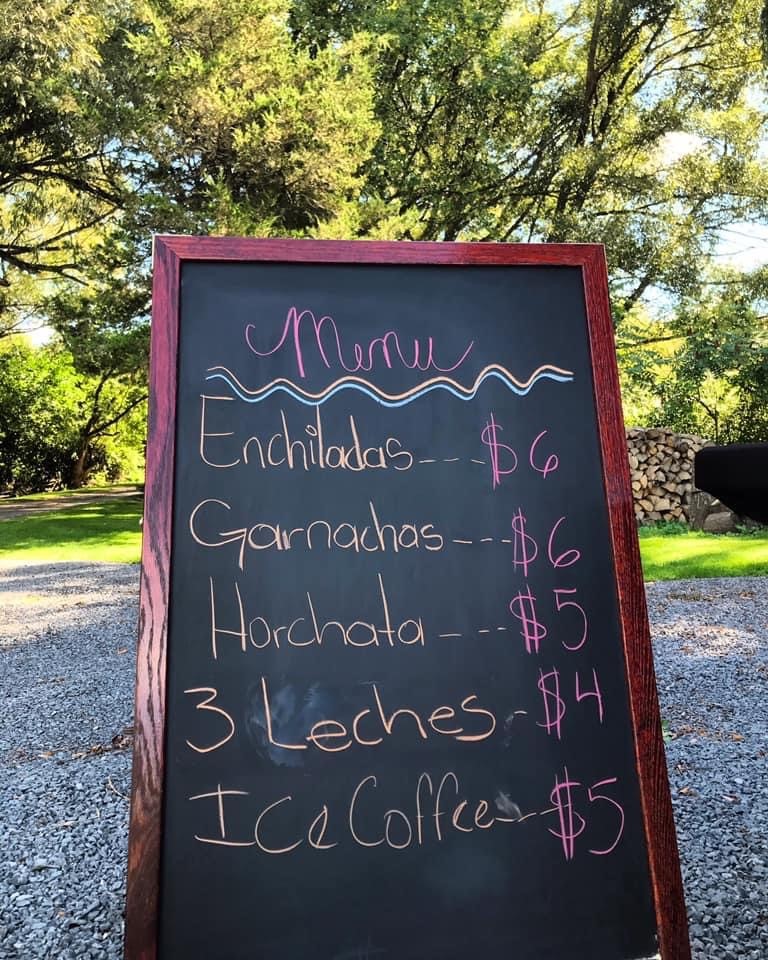 Menu
Enchiladas---$6
Garnachas---$6
Horchata---$5
3 Leches-$4
Ice Coffee--$5